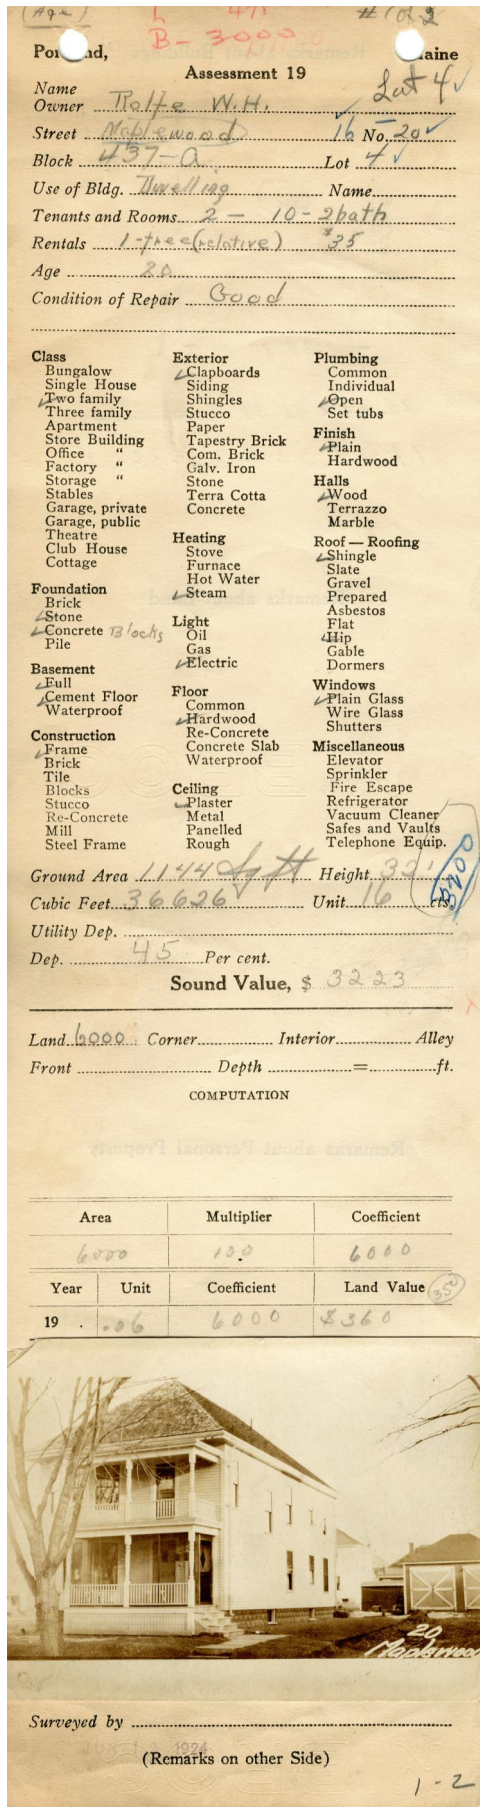 (Age)
L 471
# 1 of 2
B - 3000
Portland, Maine
Assessment 19
Lot 4 ✓
Name
Owner Rolfe W.H.
Street Maplewood 16 No. 20 ✓
Block 437-A Lot 4 ✓
Use of Bldg. Dwelling Name
Tenants and Rooms 2 - 10 - 2 bath
Rentals 1-free (relative) $35
Age 20
Condition of Repair Good
Class
Bungalow
Single House
✓ Two family
Three family
Apartment
Store Building
Office "
Factory "
Storage "
Stables
Garage, private
Garage, public
Theatre
Club House
Cottage
Foundation
Brick
✓ Stone
✓ Concrete Blocks
Pile
Basement
✓ Full
✓ Cement Floor
✓ Waterproof
Construction
✓ Frame
Brick
Tile
Blocks
Stucco
Re-Concrete
Mill
Steel Frame
Exterior
✓ Clapboards
Siding
Shingles
Stucco
Paper
Tapestry Brick
Com. Brick
Galv. Iron
Stone
Terra Cotta
Concrete
Heating
Stove
Furnace
Hot Water
✓ Steam
Light
Oil
Gas
✓ Electric
Floor
Common
✓ Hardwood
Re-Concrete
Concrete Slab
Waterproof
Ceiling
✓ Plaster
Metal
Panelled
Rough
Plumbing
Common
Individual
✓ Open
Set tubs
Finish
✓ Plain
Hardwood
Halls
✓ Wood
Terrazzo
Marble
Roof — Roofing
✓ Shingle
Slate
Gravel
Prepared
Asbestos
Flat
✓ Hip
Gable
Dormers
Windows
✓ Plain Glass
Wire Glass
Shutters
Miscellaneous
Elevator
Sprinkler
Fire Escape
Refrigerator
Vacuum Cleaner
Safes and Vaults
Telephone Equip.
Ground Area 1144 Sq ft Height 32'
Cubic Feet 36626 Unit 16 cts.
Utility Dep.
Dep. 45 Per cent.
Sound Value, $ 3223
Land 6000 Corner Interior Alley
Front Depth = ft.
COMPUTATION
Area Multiplier Coefficient
6000 100 6000
Year Unit Coefficient Land Value 350
19 . .06 6000 $360
20
Maplewood
Surveyed by
1924
(Remarks on other Side)
1-2